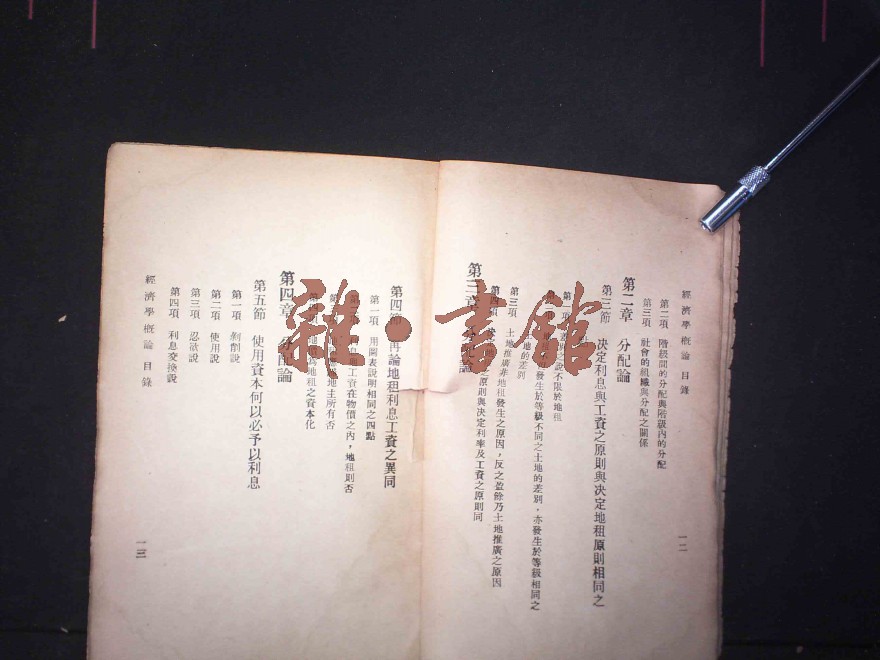 經濟學概論 目錄
第二項 階級間的分配與階級內的分配
第三項 社會的組織與分配之關係
第二章 分配論
第三節 決定利息與工資之原則與決定地租原則相同之
第一項 說不限於地租
發生於等級不同之土地的差別，亦發生於等級相同之
地的差別
第三項 土地推廣非地租發生之原因，反之盈餘乃土地推廣之原因
第四項 之原則與決定利率及工資之原則同
第三章 分配論
第四節 再論地租利息工資之異同
第一項 用圖表說明相同之四點
工資在物價之內，地租則否
地主所有否
為地租之資本化
第四章 分配論
第五節 使用資本何以必予以利息
第一項 剝削說
第二項 使用說
第三項 忍欲說
第四項 利息交換說
經濟學概論 目錄
一二
一三
雜·書館